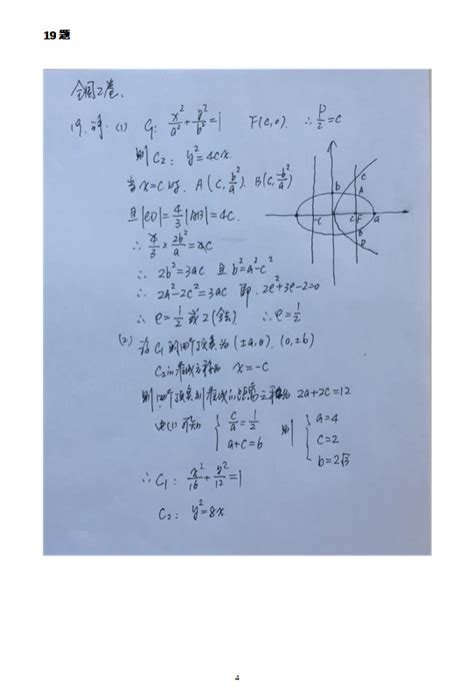 19题
全国2卷.
19. 解 (1) C₁: x²/a² + y²/b² = 1 F(c,0). ∴ p/2 = c
则 C₂: y² = 4cx.
当 x=c 时, A(c, b²/a) B(c, -b²/a)
且 |CD| = 4/3 |AB| = 4c.
∴ 4/3 × 2b²/a = 4c
∴ 2b² = 3ac 且 b² = a² - c²
∴ 2a² - 2c² = 3ac 即. 2e² + 3e - 2 = 0
∴ e = 1/2 或 2 (舍) ∴ e = 1/2
(2) 设 C₁ 的四个顶点为 (±a, 0). (0, ±b)
C₂的准线方程为 x = -c
则四个顶点到准线的距离之和为 2a + 2c = 12
由(1)可知 { c/a = 1/2 a + c = 6 则 { a = 4 c = 2 b = 2√3
∴ C₁: x²/16 + y²/12 = 1
C₂: y² = 8x.
b
C
A
-c
c
F
a
B
D
4